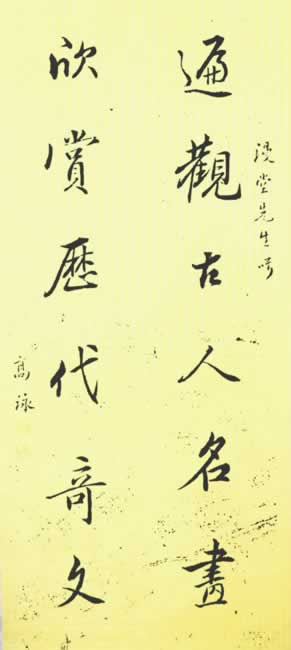 漫堂先生
遍觀古人名畫
欣賞歷代奇文
高詠